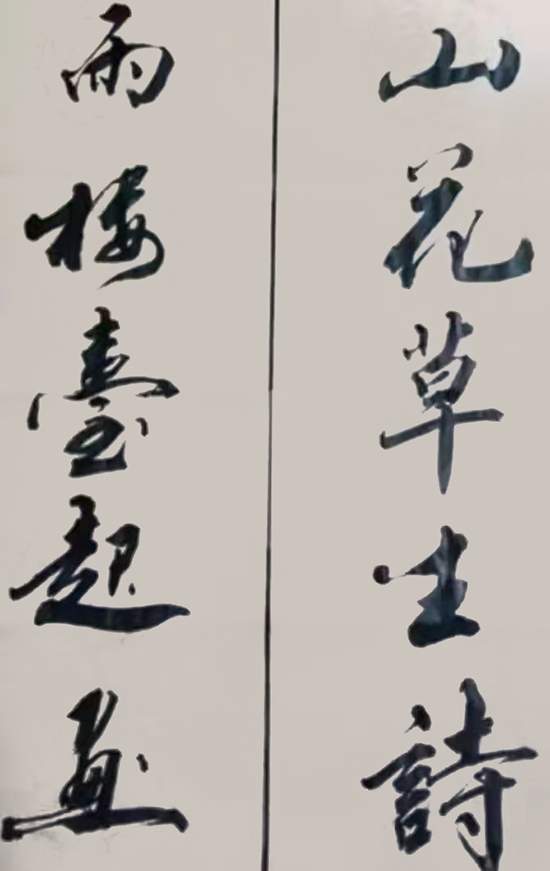 山花草生詩
雨楼臺起画